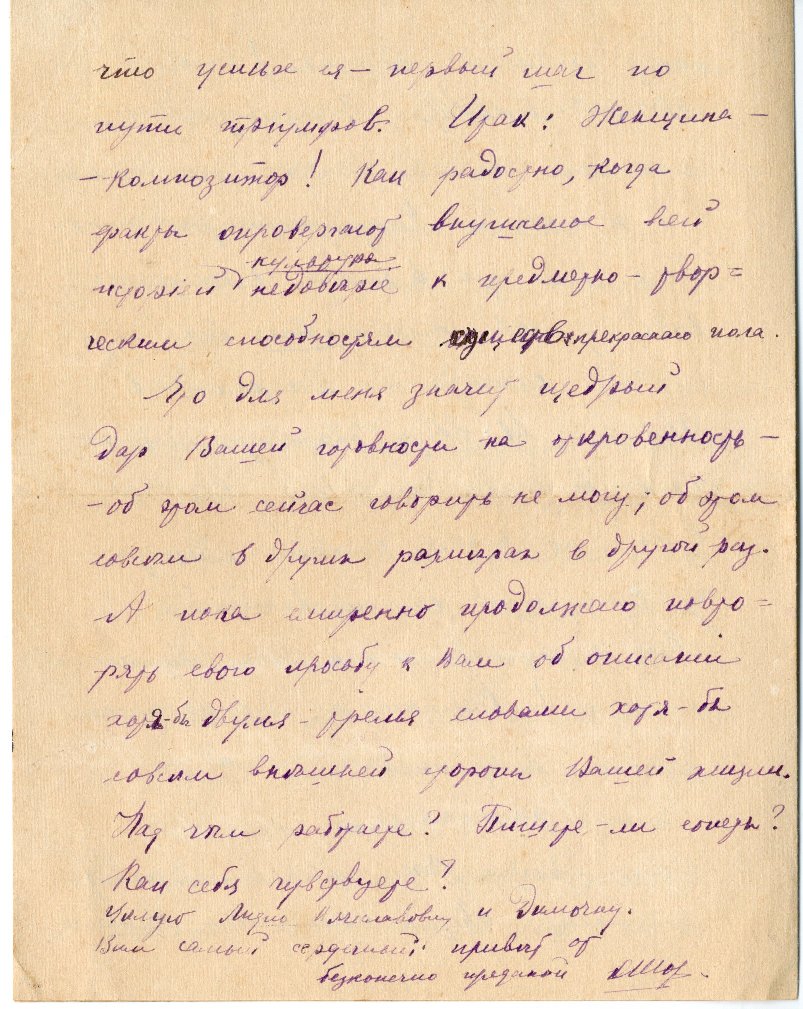 что успѣхъ ея — первый шаг по
пути тріумфов. Итак: Женщина —
— композитор! Как радостно, когда
факты опровергают внушаемое всей
культурою
недовѣріе к предметно-твор=
ческим способностям существ прекраснаго пола.
Что для меня значит щедрый
дар Вашей готовности на откровенность —
— об этом сейчас говорить не могу; об этом
совсѣм в других размѣрах в другой раз.
А пока смиренно продолжаю повто=
рять свою просьбу к Вам об описаніи
хотя-бы двумя-тремя словами хотя-бы
совсѣм внѣшней стороны Вашей жизни.
Над чѣм работаете? Пишете-ли сонеты?
Как себя чувствуете?
Цѣлую Лидію Вячеславовну и Димочку.
Вам самый сердечный привѣт от
безконечно преданной ОШор.